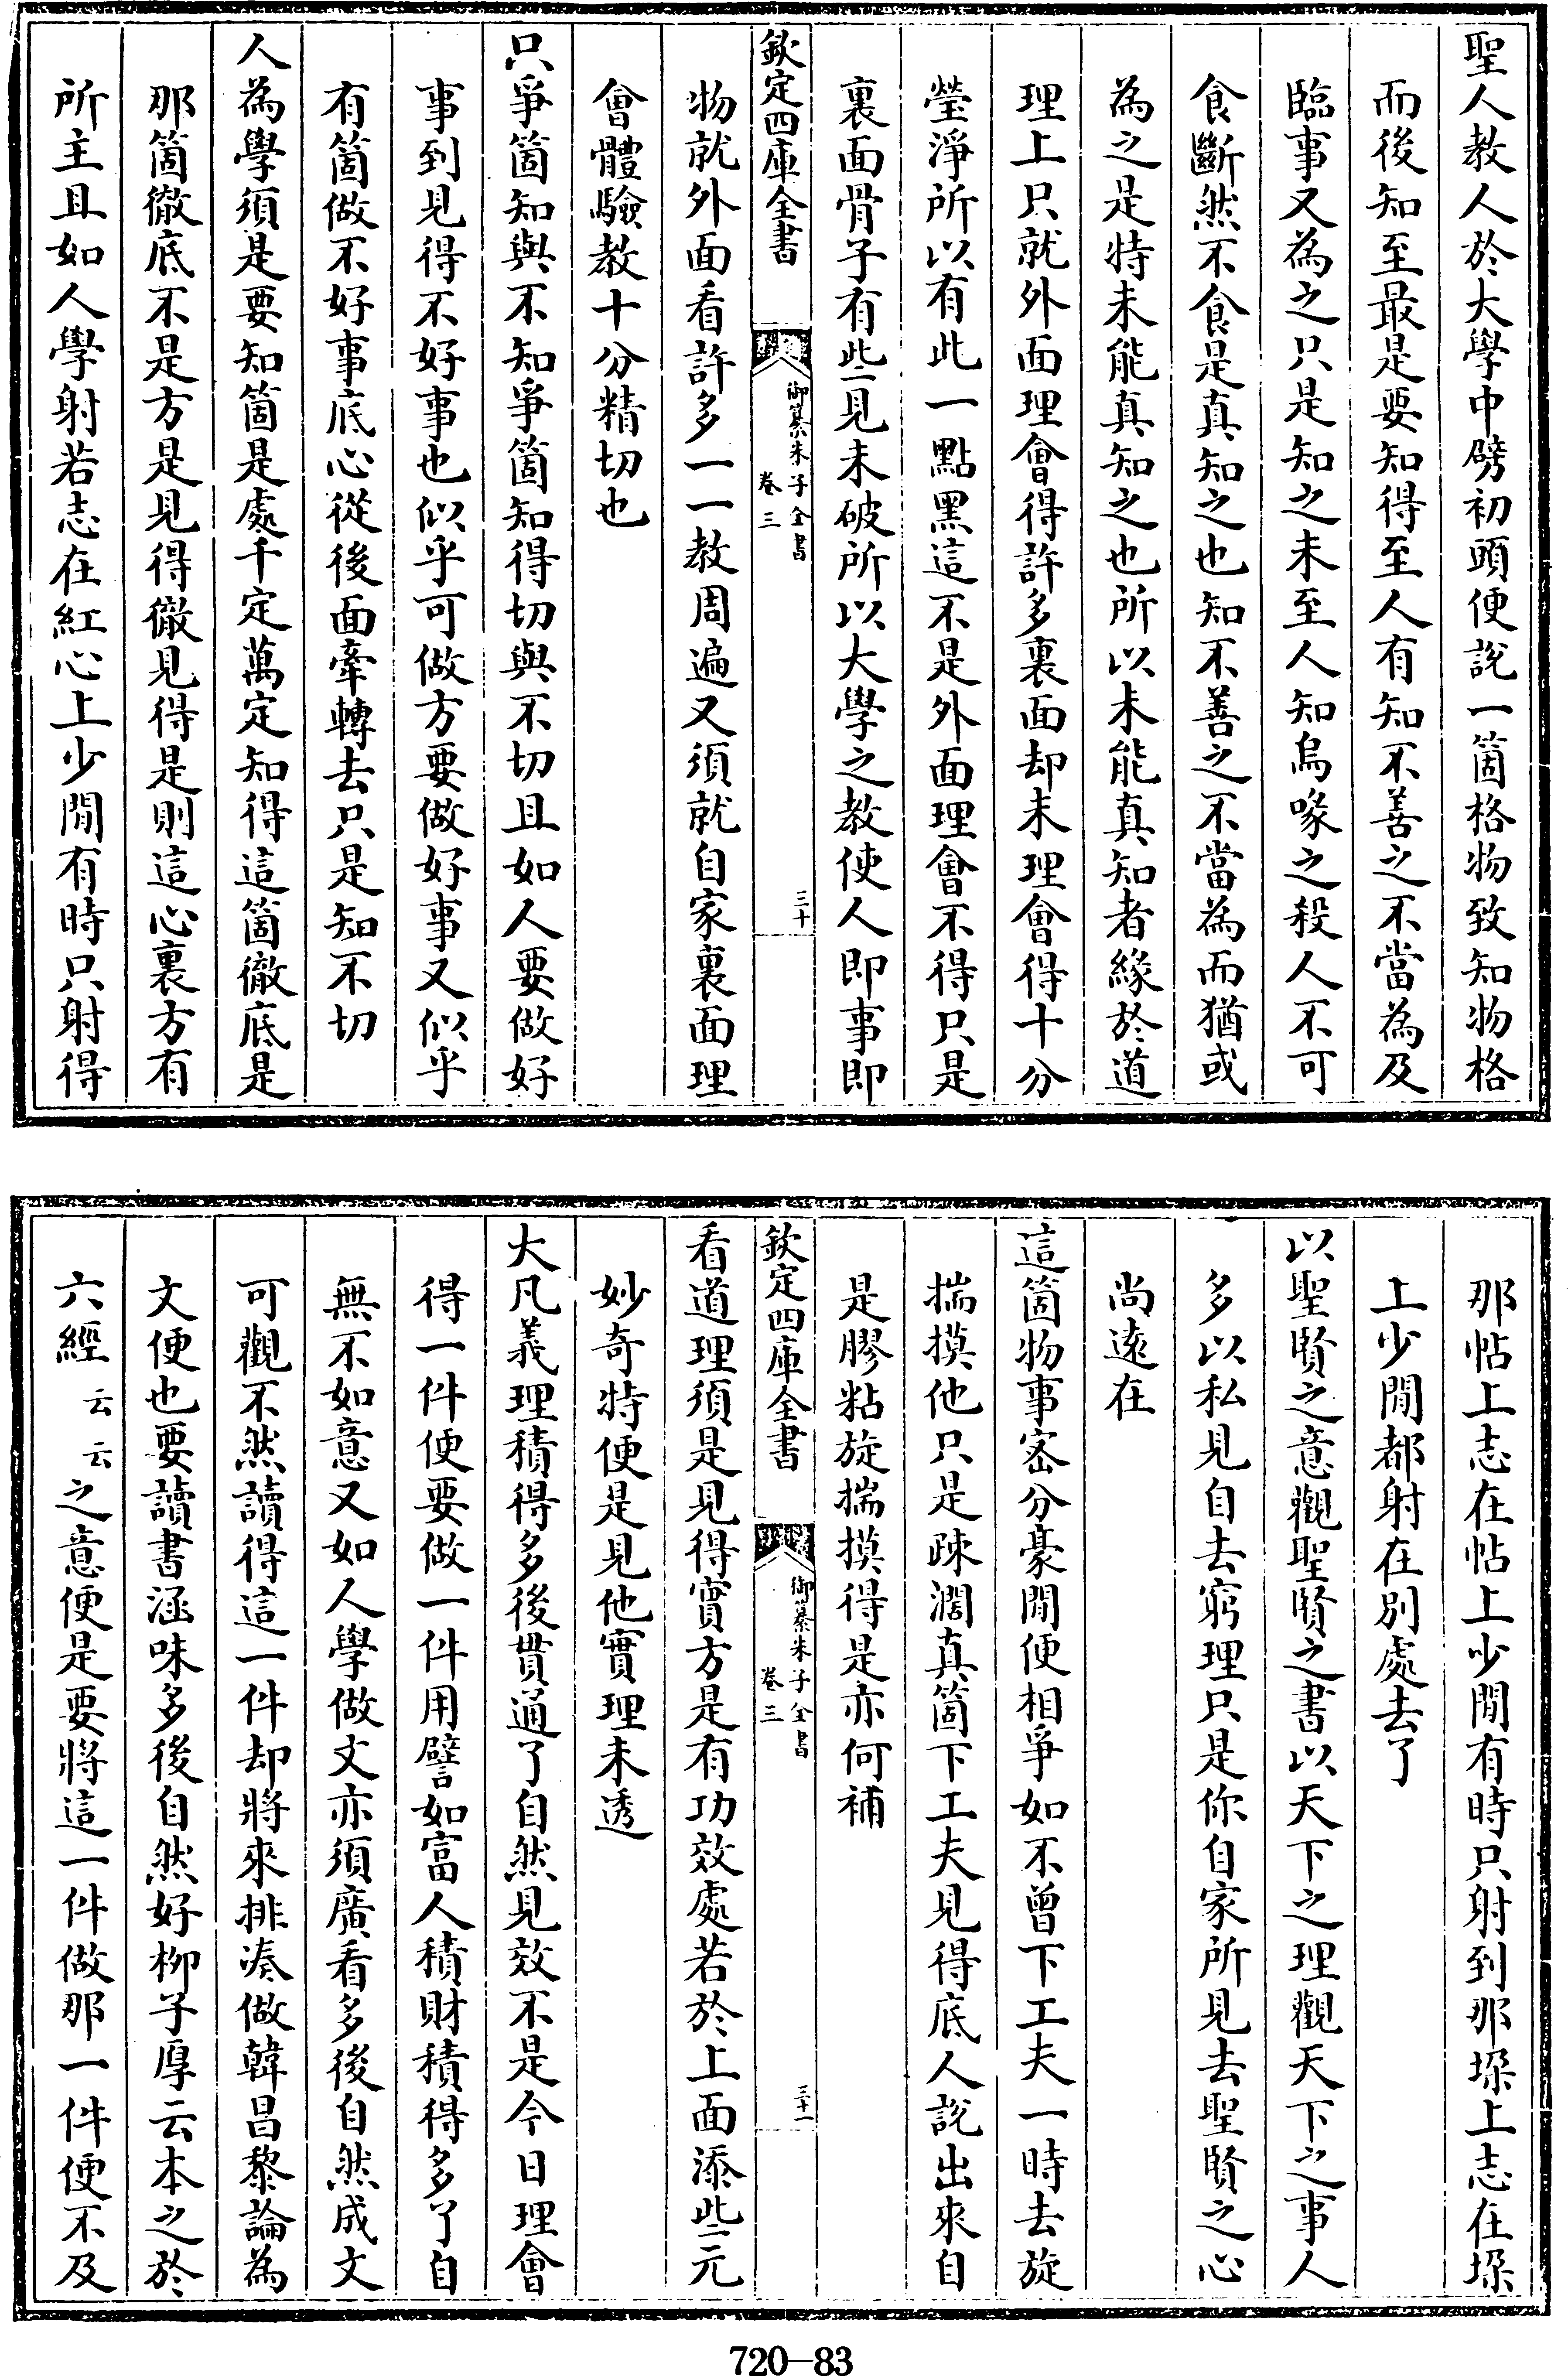 聖人教人於大學中劈初頭便說一箇格物致知物格
而後知至最是要知得至人有知不善之不當為及
臨事又為之只是知之未至人知烏喙之殺人不可
食斷然不食是真知之也知不善之不當為而猶或
為之是特未能真知之也所以未能真知者緣於道
理上只就外面理會得許多裏面却未理會得十分
瑩淨所以有此一點黑這不是外面理會不得只是
裏面骨子有些見未破所以大學之教使人即事即
欽定四庫全書
御纂朱子全書
卷三
三十
物就外面看許多一一教周遍又須就自家裏面理
會體驗教十分精切也
只爭箇知與不知爭箇知得切與不切且如人要做好
事到見得不好事也似乎可做方要做好事又似乎
有箇做不好事底心從後面牽轉去只是知不切
人為學須是要知箇是處千定萬定知得這箇徹底是
那箇徹底不是方是見得徹見得是則這心裏方有
所主且如人學射若志在紅心上少閒有時只射得
那帖上志在帖上少閒有時只射到那垛上志在垛
上少閒都射在別處去了
以聖賢之意觀聖賢之書以天下之理觀天下之事人
多以私見自去窮理只是你自家所見去聖賢之心
尚遠在
這箇物事密分豪閒便相爭如不曾下工夫一時去旋
揣摸他只是疎濶真箇下工夫見得底人說出來自
是膠粘旋揣摸得是亦何補
欽定四庫全書
御纂朱子全書
卷三
三十一
看道理須是見得實方是有功效處若於上面添些元
妙奇特便是見他實理未透
大凡義理積得多後貫通了自然見效不是今日理會
得一件便要做一件用譬如富人積財積得多了自
無不如意又如人學做文亦須廣看多後自然成文
可觀不然讀得這一件却將來排凑做韓昌黎論為
文便也要讀書涵味多後自然好柳子厚云本之於
六經云云之意便是要將這一件做那一件便不及
720-83